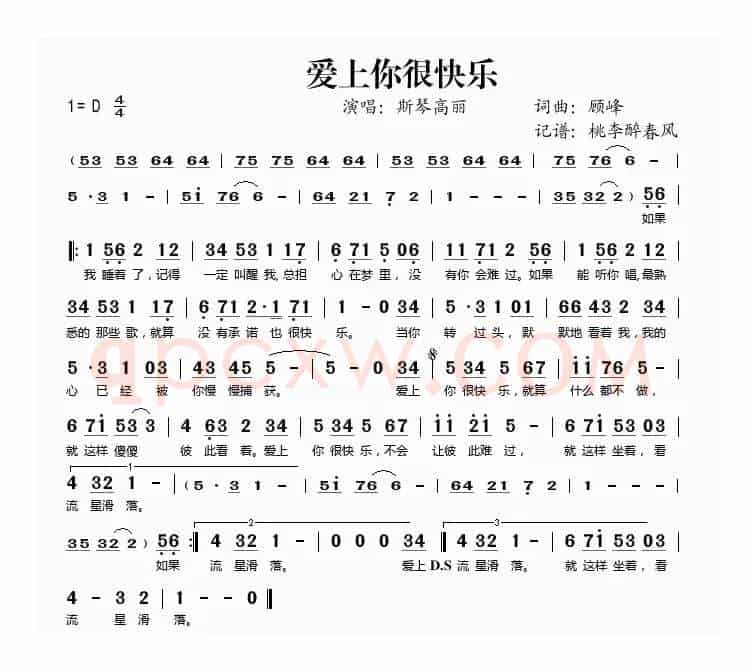 爱上你很快乐
1= D 4/4 演唱：斯琴高丽 词曲：顾峰
记谱：桃李醉春风
( 53 53 64 64 | 75 75 64 64 | 53 53 64 64 | 75 76 6 - |
5 · 3 1 - | 51 76 6 - | 64 21 7 2 | 1 - - - | 35 32 2 ) 56 |
如果
‖: 1 56 2 12 | 34 53 1 17 | 6 71 5 06 | 11 71 2 56 | 56 53 2 12 |
我 睡着 了，记得 一定 叫醒 我，总担 心 在梦 里，没 有你 会难 过。如果 能 听你 唱，最熟
34 53 1 17 | 6 71 2·1 71 | 1 - 0 34 | 5 · 3 1 01 | 66 43 2 34 |
悉的 那些 歌，就算 没 有承 诺 也 很快 乐。 当你 转 过 头，默 默地 看着 我，我的
5 · 3 1 03 | 64 32 5 - | 5 - 0 34 | 5 34 5 67 | 11 76 5 - |
心 已 经 被 你慢 慢捕 获。 爱上 你 很快 乐，就算 什么 都不 做，
6 71 53 3 | 4 63 2 34 | 5 34 5 67 | 11 21 5 - | 6 71 53 03 |
就 这样 傻傻 彼 此看 着。爱上 你 很快 乐，不会 让彼 此难 过， 就 这样 坐着，看
1
4 32 1 - | ( 5 · 3 1 - | 51 76 6 - | 64 21 7 2 | 1 - - - |
流 星滑 落。
2 3
35 32 2 ) 56 :‖ 4 32 1 - | 0 0 0 34 ‖ 4 32 1 - | 6 71 53 03 |
如果 流 星滑 落。 爱上 D.S 流 星滑 落。 就 这样 坐着，看
4 - 3 2 | 1 - - 0 ‖
流 星 滑 落。
qpcxw.com